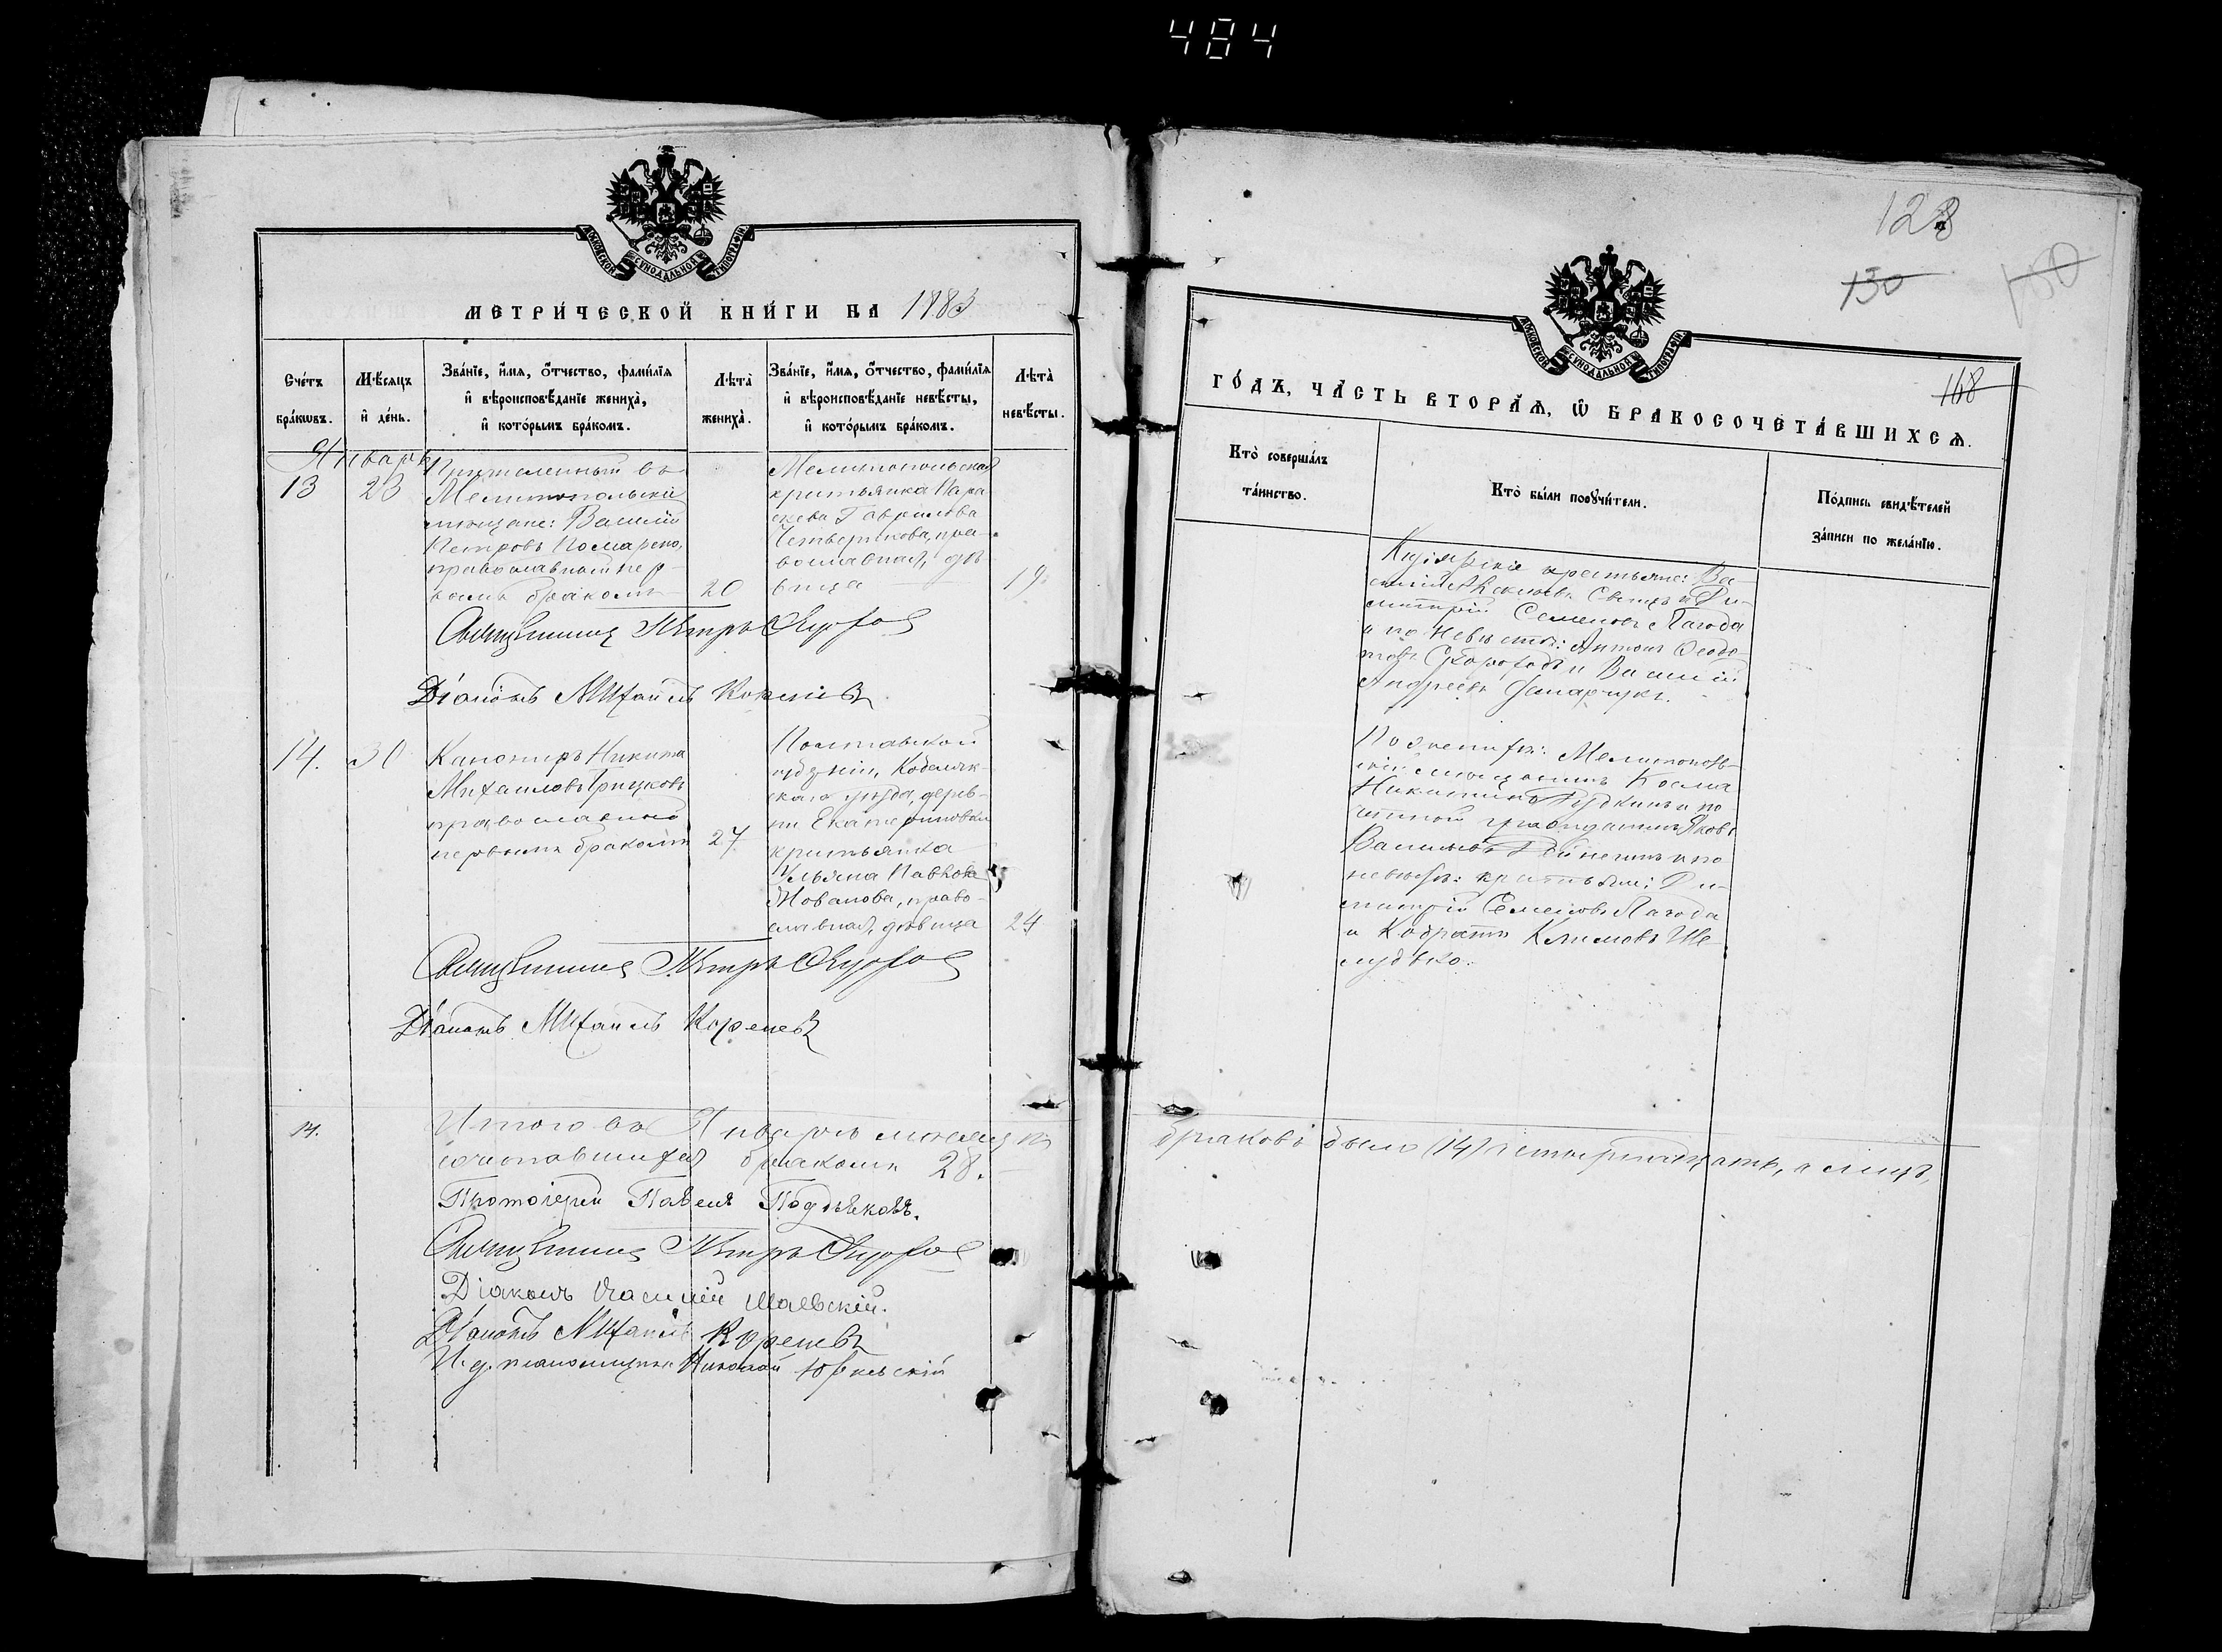 484
МОСКОВСКОЙ СѴНОДАЛЬНОЙ ТИПОГРАФІИ
МЕТРИ́ЧЕСКОЙ КНИ́ГИ НА 1883
Сче́тъ бра́кѡвъ.
Мѣ́сяцъ и҆ де́нь.
Зва́нїе, и҆́мя, ѻ҆́тчество, фами́лїя и҆ вѣроисповѣ́данїе жениха̀, и҆ кото́рымъ бра́комъ.
Лѣта̀ жениха̀.
Зва́нїе, и҆́мя, ѻ҆́тчество, фами́лїя и҆ вѣроисповѣ́данїе невѣ́сты, и҆ кото́рымъ бра́комъ.
Лѣта̀ невѣ́сты.
Январь
13
23
Мелитопольскіе
мѣщане: Василій
Петровъ
православный пер-
вымъ бракомъ
20
Мелитопольская
крестьянка Пара
скева Гаврилова
Четверикова, пра-
вославная, дѣ
вица
19.
Священникъ Петръ
Діаконъ Михаилъ Кореневъ
14.
30
Канониръ Никита
Михаиловъ Грицковъ
православный
первымъ бракомъ
27
Полтавской
губерніи, Кобеляк-
скаго уѣзда, дерев-
ни Екатериновки
крестьянка
Ульяна Павлова
Жованова, право-
славная, дѣвица
24
Священникъ Петръ
Діаконъ Михаилъ Кореневъ
14.
Итого въ Январѣ мѣсяцѣ
сочетавшихся бракомъ 28.
Протоіерей Павелъ Подьяковъ.
Священникъ Петръ
Діаконъ Василій Маевскій.
Діаконъ Михаилъ Кореневъ
И. д. псаломщика Николай
128
130
150
168
МОСКОВСКОЙ СѴНОДАЛЬНОЙ ТИПОГРАФІИ
ГО́ДЪ, ЧА́СТЬ ВТОРА́Я, Ѡ҆ БРАКОСОЧЕТА́ВШИХСЯ.
Кто̀ соверша́лъ та́инство.
Кто̀ бы́ли порꙋчи́тели.
По́дпись свидѣ́телей за́писи по жела́нїю.
крестьяне: Ва-
силій и Ди-
митрій Семеновъ Лагода
и по невѣстѣ: Антонъ Ѳеодо
товъ и Василій
Андреевъ
По женихѣ: Мелитополь-
скій мѣщанинъ Косма
Никитинъ Рудкинъ и по-
четный гражданинъ Яковъ
Васильевъ и по
невѣстѣ: крестьяне: Ди-
митрій Семеновъ Лагода
и Кодратъ Климовъ Ше-
лудько.
браковъ было (14) четырнадцать, а лицъ,